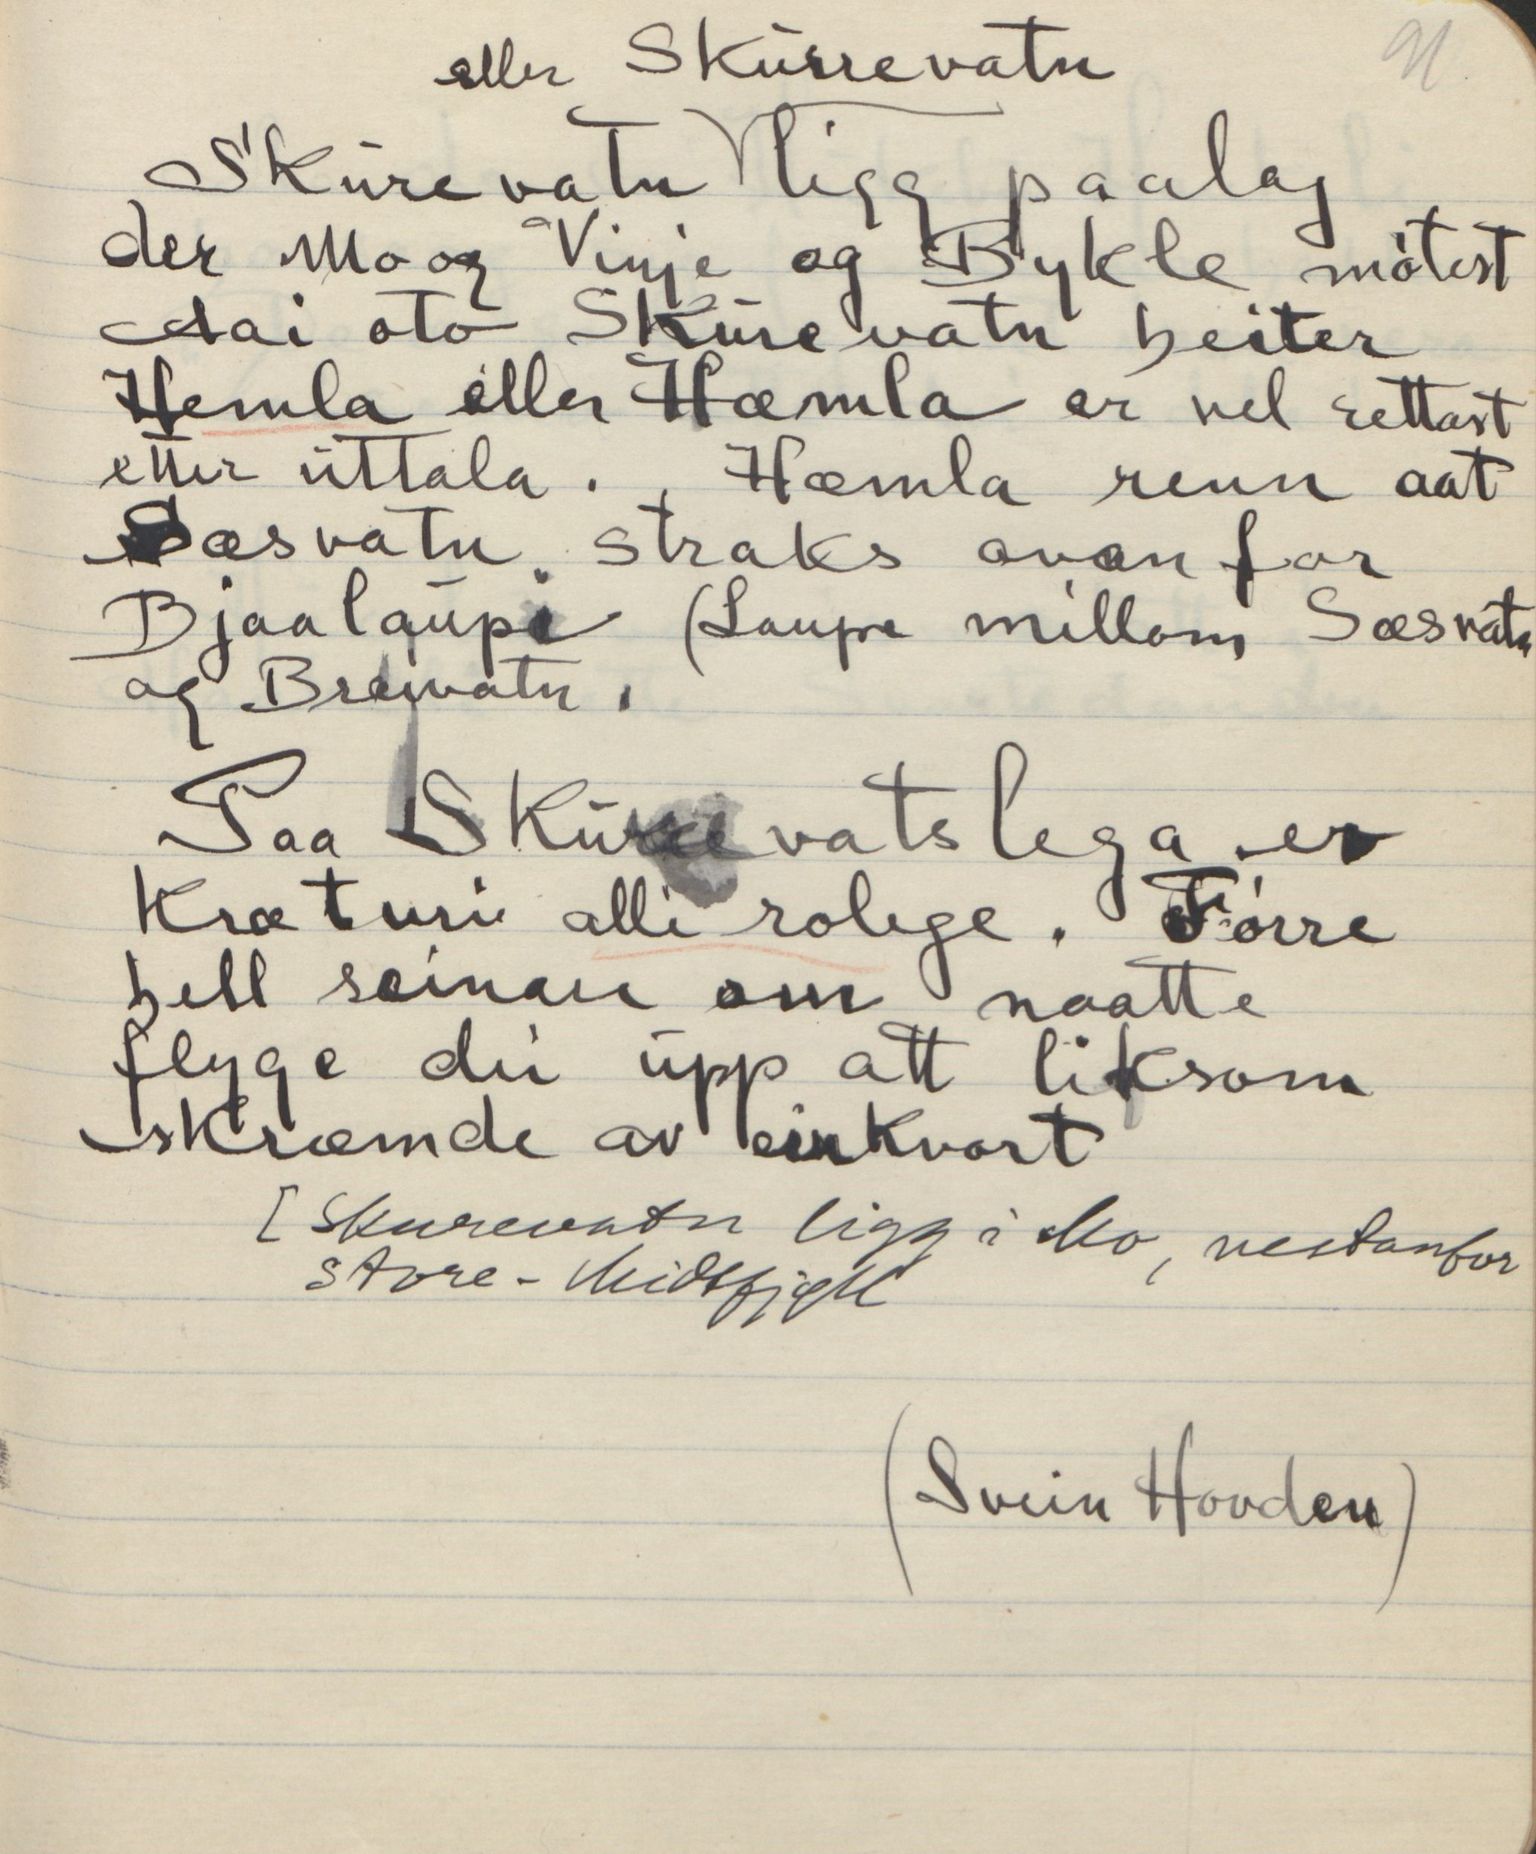 91
eller Skurrevatn
Skurevatn ligg paalag
der Mo og Vinje og Bykle mötest
Aai oto Skurevatn heiter
Hemla eller Hæmla er vel rettast
etter uttala. Hæmla renn aat
Sæsvatn straks ovanfor
Bjaalaupi (Laupe millom Sæsvatn
og Breivatn.
Paa Skurevatslega er
Kræturi alli rolege. Förre
hell seinare om naatte
flyge dei upp att liksom
skræmde av einkvart
[Skurevatn ligg i Mo, vestanfor
store-Meidsfjell
(Svein Hovden)